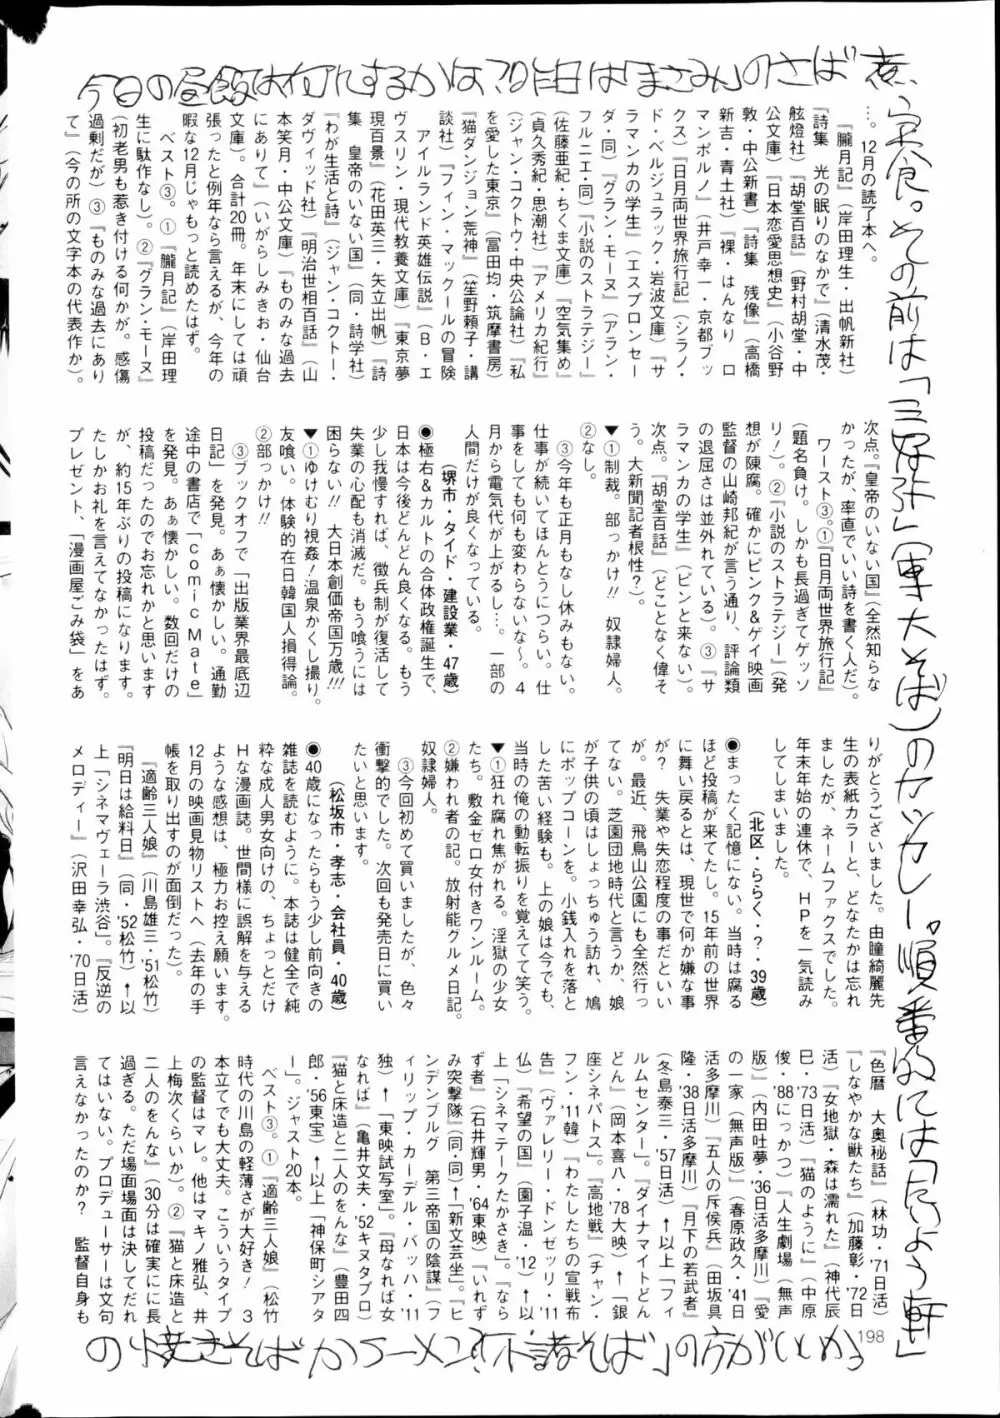 今日の昼飯は何にするかな?昨日は「まさみ」のさば煮
定食。その前は「三好弥」のカツカレー。順番的には
の焼きそばかラーメン?
…。12月の読了本へ。
『朧月記』(岸田理生・出帆新社)
『詩集 光の眠りのなかで』(清水茂・
舷燈社)『胡堂百話』(野村胡堂・中
公文庫)『日本恋愛思想史』(小谷野
敦・中公新書)『詩集 残像』(高橋
新吉・青土社)『裸・はんなり ロ
マンポルノ』(井戸幸一・京都ブッ
クス)『日月両世界旅行記』(シラノ・
ド・ベルジュラック・岩波文庫)『サ
ラマンカの学生』(エスプロンセー
ダ・同)『グラン・モーヌ』(アラン・
フルニエ・同)『小説のストラテジー』
(佐藤亜紀・ちくま文庫)『空気集め』
(貞久秀紀・思潮社)『アメリカ紀行』
(ジャン・コクトウ・中央公論社)『私
を愛した東京』(冨田均・筑摩書房)
『猫ダンジョン荒神』(笙野頼子・講
談社)『フィン・マックールの冒険
アイルランド英雄伝説』(B・エ
ヴスリン・現代教養文庫)『東京夢
現百景』(花田英三・矢立出帆)『詩
集 皇帝のいない国』(同・詩学社)
『わが生活と詩』(ジャン・コクトー・
ダヴィッド社)『明治世相百話』(山
本笑月・中公文庫)『ものみな過去
にありて』(いがらしみきお・仙台
文庫)。合計20冊。年末にしては頑
張ったと例年なら言えるが、今年の
暇な12月じゃもっと読めたはず。
ベスト③。①『朧月記』(岸田理
生に駄作なし)。②『グラン・モーヌ』
(初老男も惹き付ける何かが。感傷
過剰だが)③『ものみな過去にあり
て』(今の所の文字本の代表作か)。
次点。『皇帝のいない国』(全然知らな
かったが、率直でいい詩を書く人だ)。
ワースト③。①『日月両世界旅行記』
(題名負け。しかも長過ぎてゲッソ
リ!)。②『小説のストラテジー』(発
想が陳腐。確かにピンク&ゲイ映画
監督の山崎邦紀が言う通り、評論類
の退屈さは並外れている)。③『サ
ラマンカの学生』(ピンと来ない)。
次点。『胡堂百話』(どことなく偉そ
う。大新聞記者根性?)。
▼①制裁。部っかけ!! 奴隷婦人。
②なし。
③今年も正月もなし休みもない。
仕事が続いてほんとうにつらい。仕
事をしても何も変わらないな〜。4
月から電気代が上がるし…。一部の
人間だけが良くなっている。
(堺市・タイド・建設業・47歳)
●極右&カルトの合体政権誕生で、
日本は今後どんどん良くなる。もう
少し我慢すれば、徴兵制が復活して
失業の心配も消滅だ。もう喰うには
困らない!! 大日本創価帝国万歳!!!
▼①ゆけむり視姦!温泉かくし撮り。
友喰い。体験的在日韓国人損得論。
②部っかけ!!
③ブックオフで「出版業界最底辺
日記」を発見。あぁ懐かしい。通勤
途中の書店で「comic Mate」
を発見。あぁ懐かしい。数回だけの
投稿だったのでお忘れかと思います
が、約15年ぶりの投稿になります。
たしかお礼を言えてなかったはず。
プレゼント、「漫画屋ごみ袋」をあ
りがとうございました。由瞳綺麗先
生の表紙カラーと、どなたかは忘れ
ましたが、ネームファクスでした。
年末年始の連休で、HPを一気読み
してしまいました。
(北区・ららく・?・39歳)
●まったく記憶にない。当時は腐る
ほど投稿が来てたし。15年前の世界
に舞い戻るとは、現世で何か嫌な事
が? 失業や失恋程度の事だといい
が。最近、飛鳥山公園にも全然行っ
てない。芝園団地時代と言うか、娘
が子供の頃はしょっちゅう訪れ、鳩
にポップコーンを。小銭入れを落と
した苦い経験も。上の娘は今でも、
当時の俺の動転振りを覚えてて笑う。
▼①狂れ腐れ焦がれる。淫獄の少女
たち。敷金ゼロ女付きワンルーム。
②嫌われ者の記。放射能グルメ日記。
奴隷婦人。
③今回初めて買いましたが、色々
衝撃的でした。次回も発売日に買い
たいと思います。
(松坂市・孝志・会社員・40歳)
●40歳になったらもう少し前向きの
雑誌を読むように。本誌は健全で純
粋な成人男女向けの、ちょっとだけ
Hな漫画誌。世間様に誤解を与える
ような感想は、極力お控え願います。
12月の映画見物リストへ(去年の手
帳を取り出すのが面倒だった)。
『適齢三人娘』(川島雄三・'51松竹)
『明日は給料日』(同・'52松竹)↑以
上「シネマヴェーラ渋谷」。『反逆の
メロディー』(沢田幸弘・'70日活)
『色暦 大奥秘話』(林功・'71日活)
『しなやかな獣たち』(加藤彰・'72日
活)『女地獄・森は濡れた』(神代辰
巳・'73日活)『猫のように』(中原
俊・'88にっかつ)『人生劇場(無声
版)』(内田吐夢・'36日活多摩川)『愛
の一家(無声版)』(春原政久・'41日
活多摩川)『五人の斥候兵』(田坂具
隆・'38日活多摩川)『月下の若武者』
(冬島泰三・'57日活)↑以上「フィ
ルムセンター」。『ダイナマイトどん
どん』(岡本喜八・'78大映)↑「銀
座シネパトス」。『高地戦』(チャン・
フン・'11韓)『わたしたちの宣戦布
告』(ヴァレリー・ドンゼッリ・'11
仏)『希望の国』(園子温・'12)↑以
上「シネマテークたかさき」。『なら
ず者』(石井輝男・'64東映)『いれず
み突撃隊』(同・同)↑「新文芸坐」。『ヒ
ンデンブルグ 第三帝国の陰謀』(フ
ィリップ・カーデル・バッハ・'11
独)↑「東映試写室」。『母なれば女
なれば』(亀井文夫・'52キヌタプロ)
『猫と床造と二人のをんな』(豊田四
郎・'56東宝)↑以上「神保町シアタ
ー」。ジャスト20本。
ベスト③。①『適齢三人娘』(松竹
時代の川島の軽薄さが大好き! 3
本立てでも大丈夫。こういうタイプ
の監督はマレ。他はマキノ雅弘、井
上梅次くらいか)。②『猫と床造と
二人のをんな』(30分は確実に長
過ぎる。ただ場面場面は決してだれ
てはいない。プロデューサーは文句
言えなかったのか? 監督自身も
198